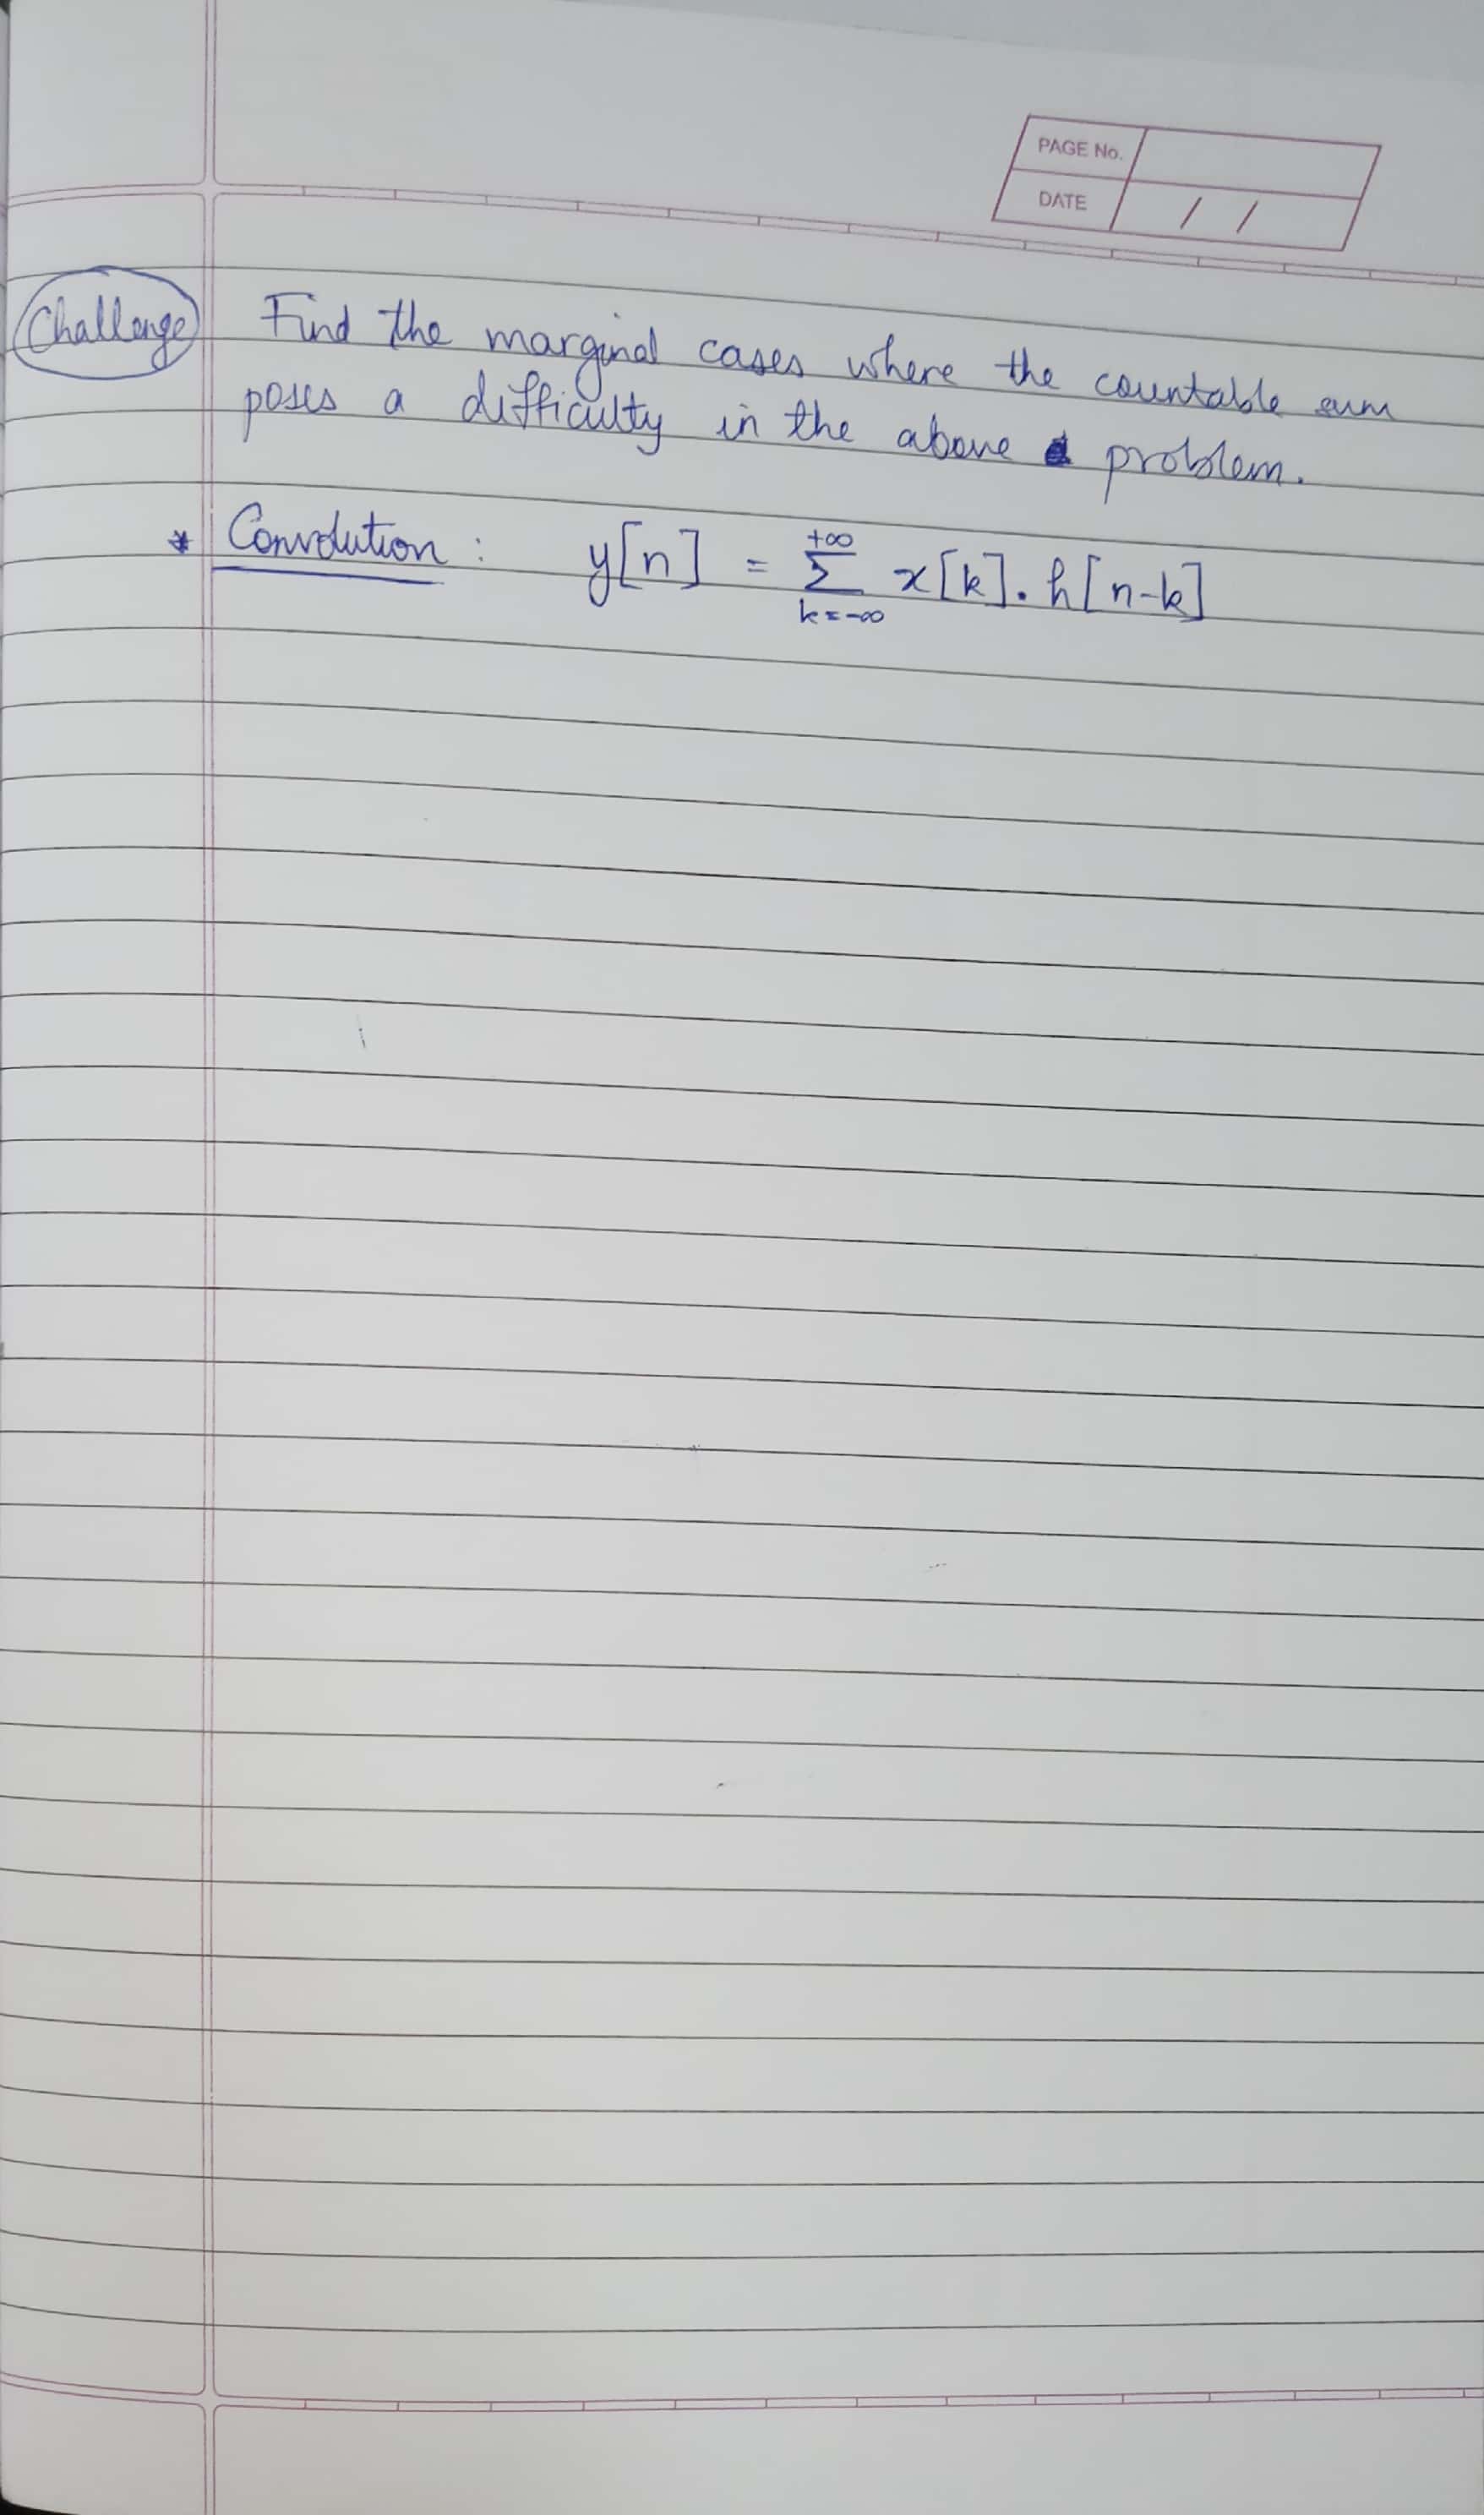 PAGE No.
DATE / /
Challenge Find the marginal cases where the countable sum
poses a difficulty in the above problem.
* Convolution : y[n] = +∞ Σ k=-∞ x[k] . h[n-k]